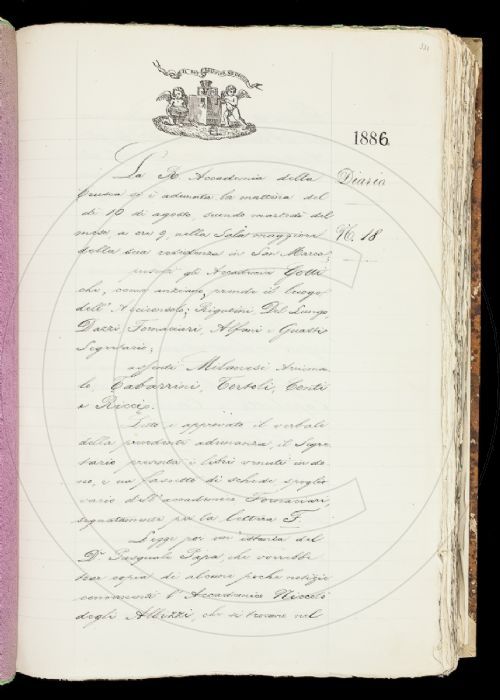 331
IL PIÙ BEL FIOR NE COGLIE
1886
La R. Accademia della
Diario
Crusca si è adunata la mattina del
dì 10 di agosto, secondo martedì del
mese a ore 9, nella Sala maggiore
Nr. 18
della sua residenza in San Marco;
presenti gli Accademici Gotti
che, come anziano, prende il luogo
dell'Arciconsolo; Rigutini, Del Lungo
Dazzi, Fornaciari, Alfani e Guasti
Segretario;
assenti Milanesi Arciconso
lo, Tabarrini, Tortoli, Conti
e Riccio.
Letto e approvato il verbale
della precedente adunanza, il Segre
tario presenta i libri venuti in do
no, e un fascetto di schede spoglio
vario dell'accademico Fornaciari,
segnatamente per la lettera F.
Legge poi un'istanza del
Dr. Pasquale Papa, che vorrebbe
trar copia di alcune poche notizie
concernenti l'Accademico Niccolò
degli Albizzi, che si trovano nel